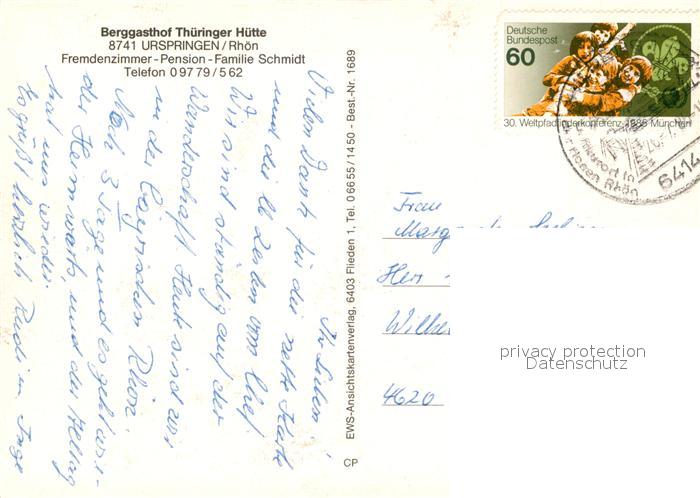 Berggasthof Thüringer Hütte
8741 URSPRINGEN/Rhön
Fremdenzimmer-Pension-Familie Schmidt
Telefon 09779/562
Ihr Lieben!
Vielen Dank für die nette Karte
und die lb. Zeilen vom Chef
Wir sind ständig auf der
Wanderschaft. Heute sind wir
in der Bayrischen Rhön.
Noch 3 Tage und es geht wie-
der Heimwärts, und der Alltag
hat uns wieder.
Es grüßt herzlich Rudi u. Inge
EWS-Ansichtskartenverlag, 6403 Flieden 1, Tel. 06655/1450 - Best.-Nr. 1689
CP
Deutsche
Bundespost
60
30. Weltpfadfinderkonferenz 1985 München
Hohen Rhön
6414
Frau
Herr
4620
privacy protection
Datenschutz